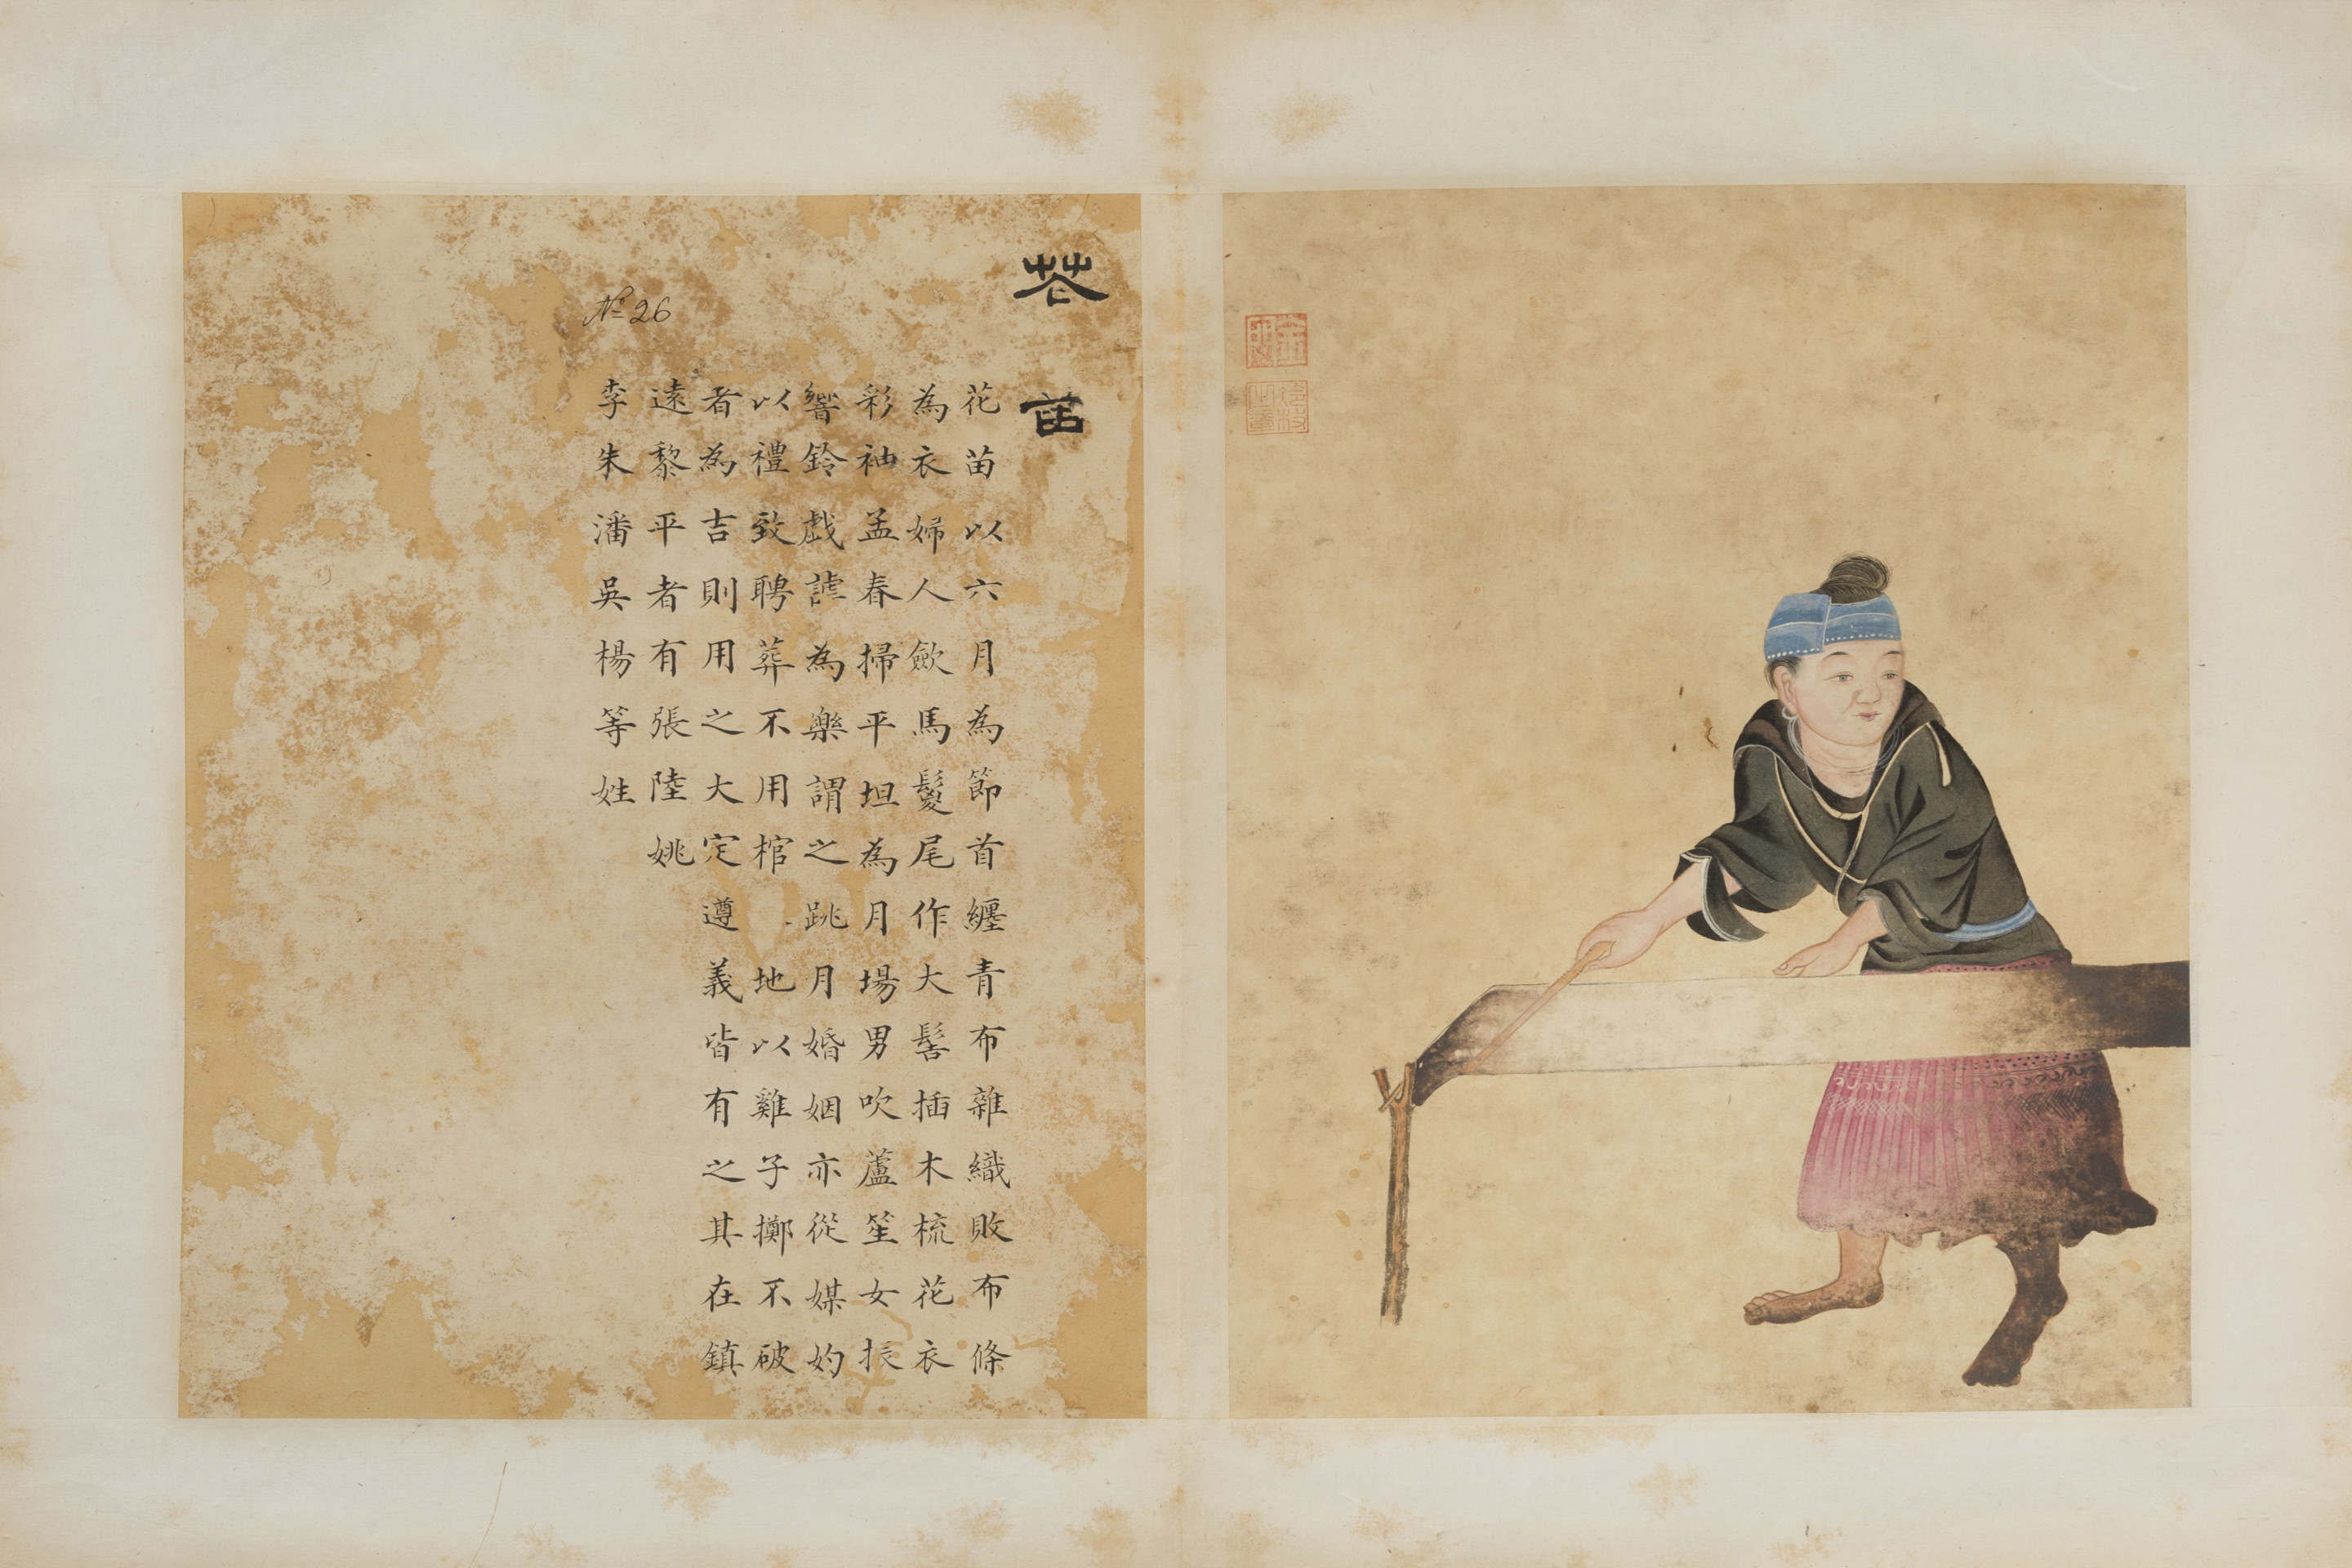 花苗
花苗以六月為節首纏青布雜織敗布條
為衣婦人歛馬鬉尾作大髻插木梳花衣
彩袖孟春掃平坦為月場男吹蘆笙女振
響鈴戲謔為樂謂之跳月婚姻亦從媒妁
以禮致聘葬不用棺地以雞子擲不破
者為吉則用之大定遵義皆有之其在鎮
遠黎平者有張陸姚
李朱潘吳楊等姓
№ 26